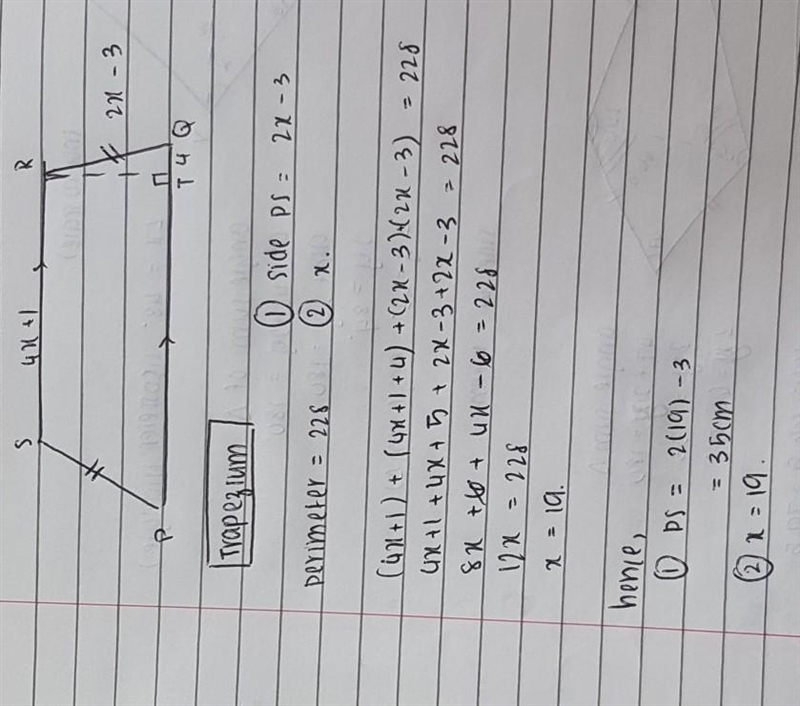 S 4x+1 R
2x-3
P T 4 Q
Trapezium
① side PS = 2x-3
perimeter = 228 ② x.
(4x+1) + (4x+1+4) + (2x-3)+(2x-3) = 228
4x+1+4x+5 + 2x-3+2x-3 = 228
8x+6 + 4x-6 = 228
12x = 228
x = 19.
hence,
① PS = 2(19) -3
= 35cm
② x = 19.